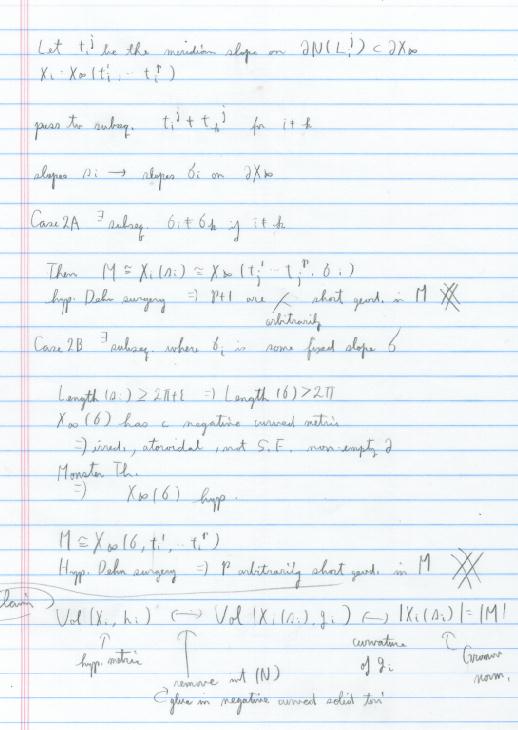 Let t_i^j be the meridian slope on ∂N(L_i^j) ⊂ ∂X∞
X_i = X∞(t_i^1, ... t_i^p)
pass to subseq. t_i^j ≠ t_k^j for i ≠ k
slopes s_i → slopes σ_i on ∂X∞
Case 2A ∃ subseq. σ_i ≠ σ_k if i ≠ k
Then M ≅ X_i(s_i) ≅ X∞(t_i^1 ... t_i^p, σ_i)
hyp. Dehn surgery ⇒ p+1 are short geod. in M
arbitrarily
Case 2B ∃ subseq. where σ_i is some fixed slope σ
Length(s_i) ≥ 2π+ε ⇒ Length(σ) > 2π
X∞(σ) has a negative curved metric
⇒ irred., atoroidal, not S.F. non-empty ∂
Monster Th.
⇒ X∞(σ) hyp.
M ≅ X∞(σ, t_i^1, ... t_i^p)
Hyp. Dehn surgery ⇒ p arbitrarily short geod. in M
Claim
Vol(X_i, h_i) ↔ Vol(X_i(s_i), g_i) ↔ |X_i(s_i)| = |M|
↑ hyp. metric
curvature of g_i
↑ Gromov norm.
remove int(N)
glue in negative curved solid tori